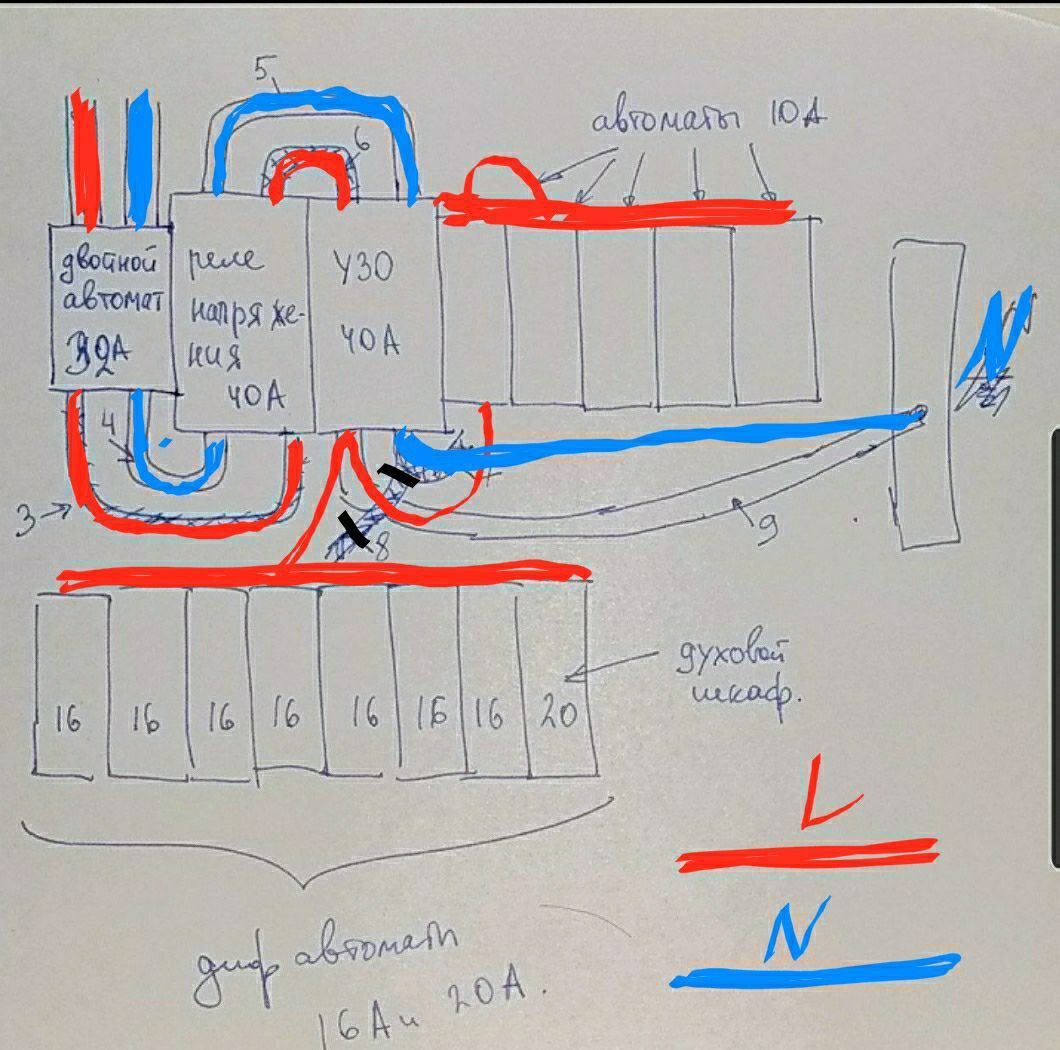 5
автоматы 10А
6
двойной
автомат
32А
реле
напряже-
ния
40А
УЗО
40А
N
4
3
8
9
духовой
шкаф.
16 16 16 16 16 16 16 20
L
N
диф автоматы
16А и 20А.